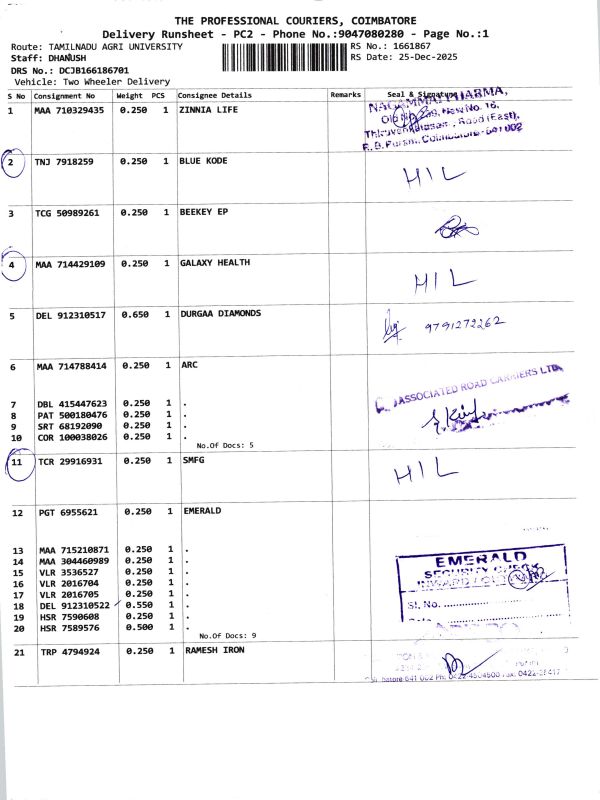 THE PROFESSIONAL COURIERS, COIMBATORE
Delivery Runsheet - PC2 - Phone No.:9047080280 - Page No.:1
Route: TAMILNADU AGRI UNIVERSITY RS No.: 1661867
Staff: DHANUSH RS Date: 25-Dec-2025
DRS No.: DCJB166186701
Vehicle: Two Wheeler Delivery
S No Consignment No Weight PCS Consignee Details Remarks Seal & Signature
1 MAA 710329435 0.250 1 ZINNIA LIFE
NAGAMMAI PHARMA,
Old No. 299, New No. 16,
Thiruvenkatasamy Road (East),
R. S. Puram, Coimbatore - 641 002
2 TNJ 7918259 0.250 1 BLUE KODE HIL
3 TCG 50989261 0.250 1 BEEKEY EP
4 MAA 714429109 0.250 1 GALAXY HEALTH HIL
5 DEL 912310517 0.650 1 DURGAA DIAMONDS 9791272262
6 MAA 714788414 0.250 1 ARC
ASSOCIATED ROAD CARRIERS LTD
7 DBL 415447623 0.250 1 .
8 PAT 500180476 0.250 1 .
9 SRT 68192090 0.250 1 .
10 COR 100038026 0.250 1 .
No.Of Docs: 5
11 TCR 29916931 0.250 1 SMFG HIL
12 PGT 6955621 0.250 1 EMERALD
13 MAA 715210871 0.250 1 .
14 MAA 304460989 0.250 1 .
15 VLR 3536527 0.250 1 .
16 VLR 2016704 0.250 1 .
17 VLR 2016705 0.250 1 .
18 DEL 912310522 0.550 1 .
19 HSR 7590608 0.250 1 .
20 HSR 7589576 0.500 1 .
No.Of Docs: 9
EMERALD
SECURITY CHECK
INWARD /
Sl. No.
21 TRP 4794924 0.250 1 RAMESH IRON